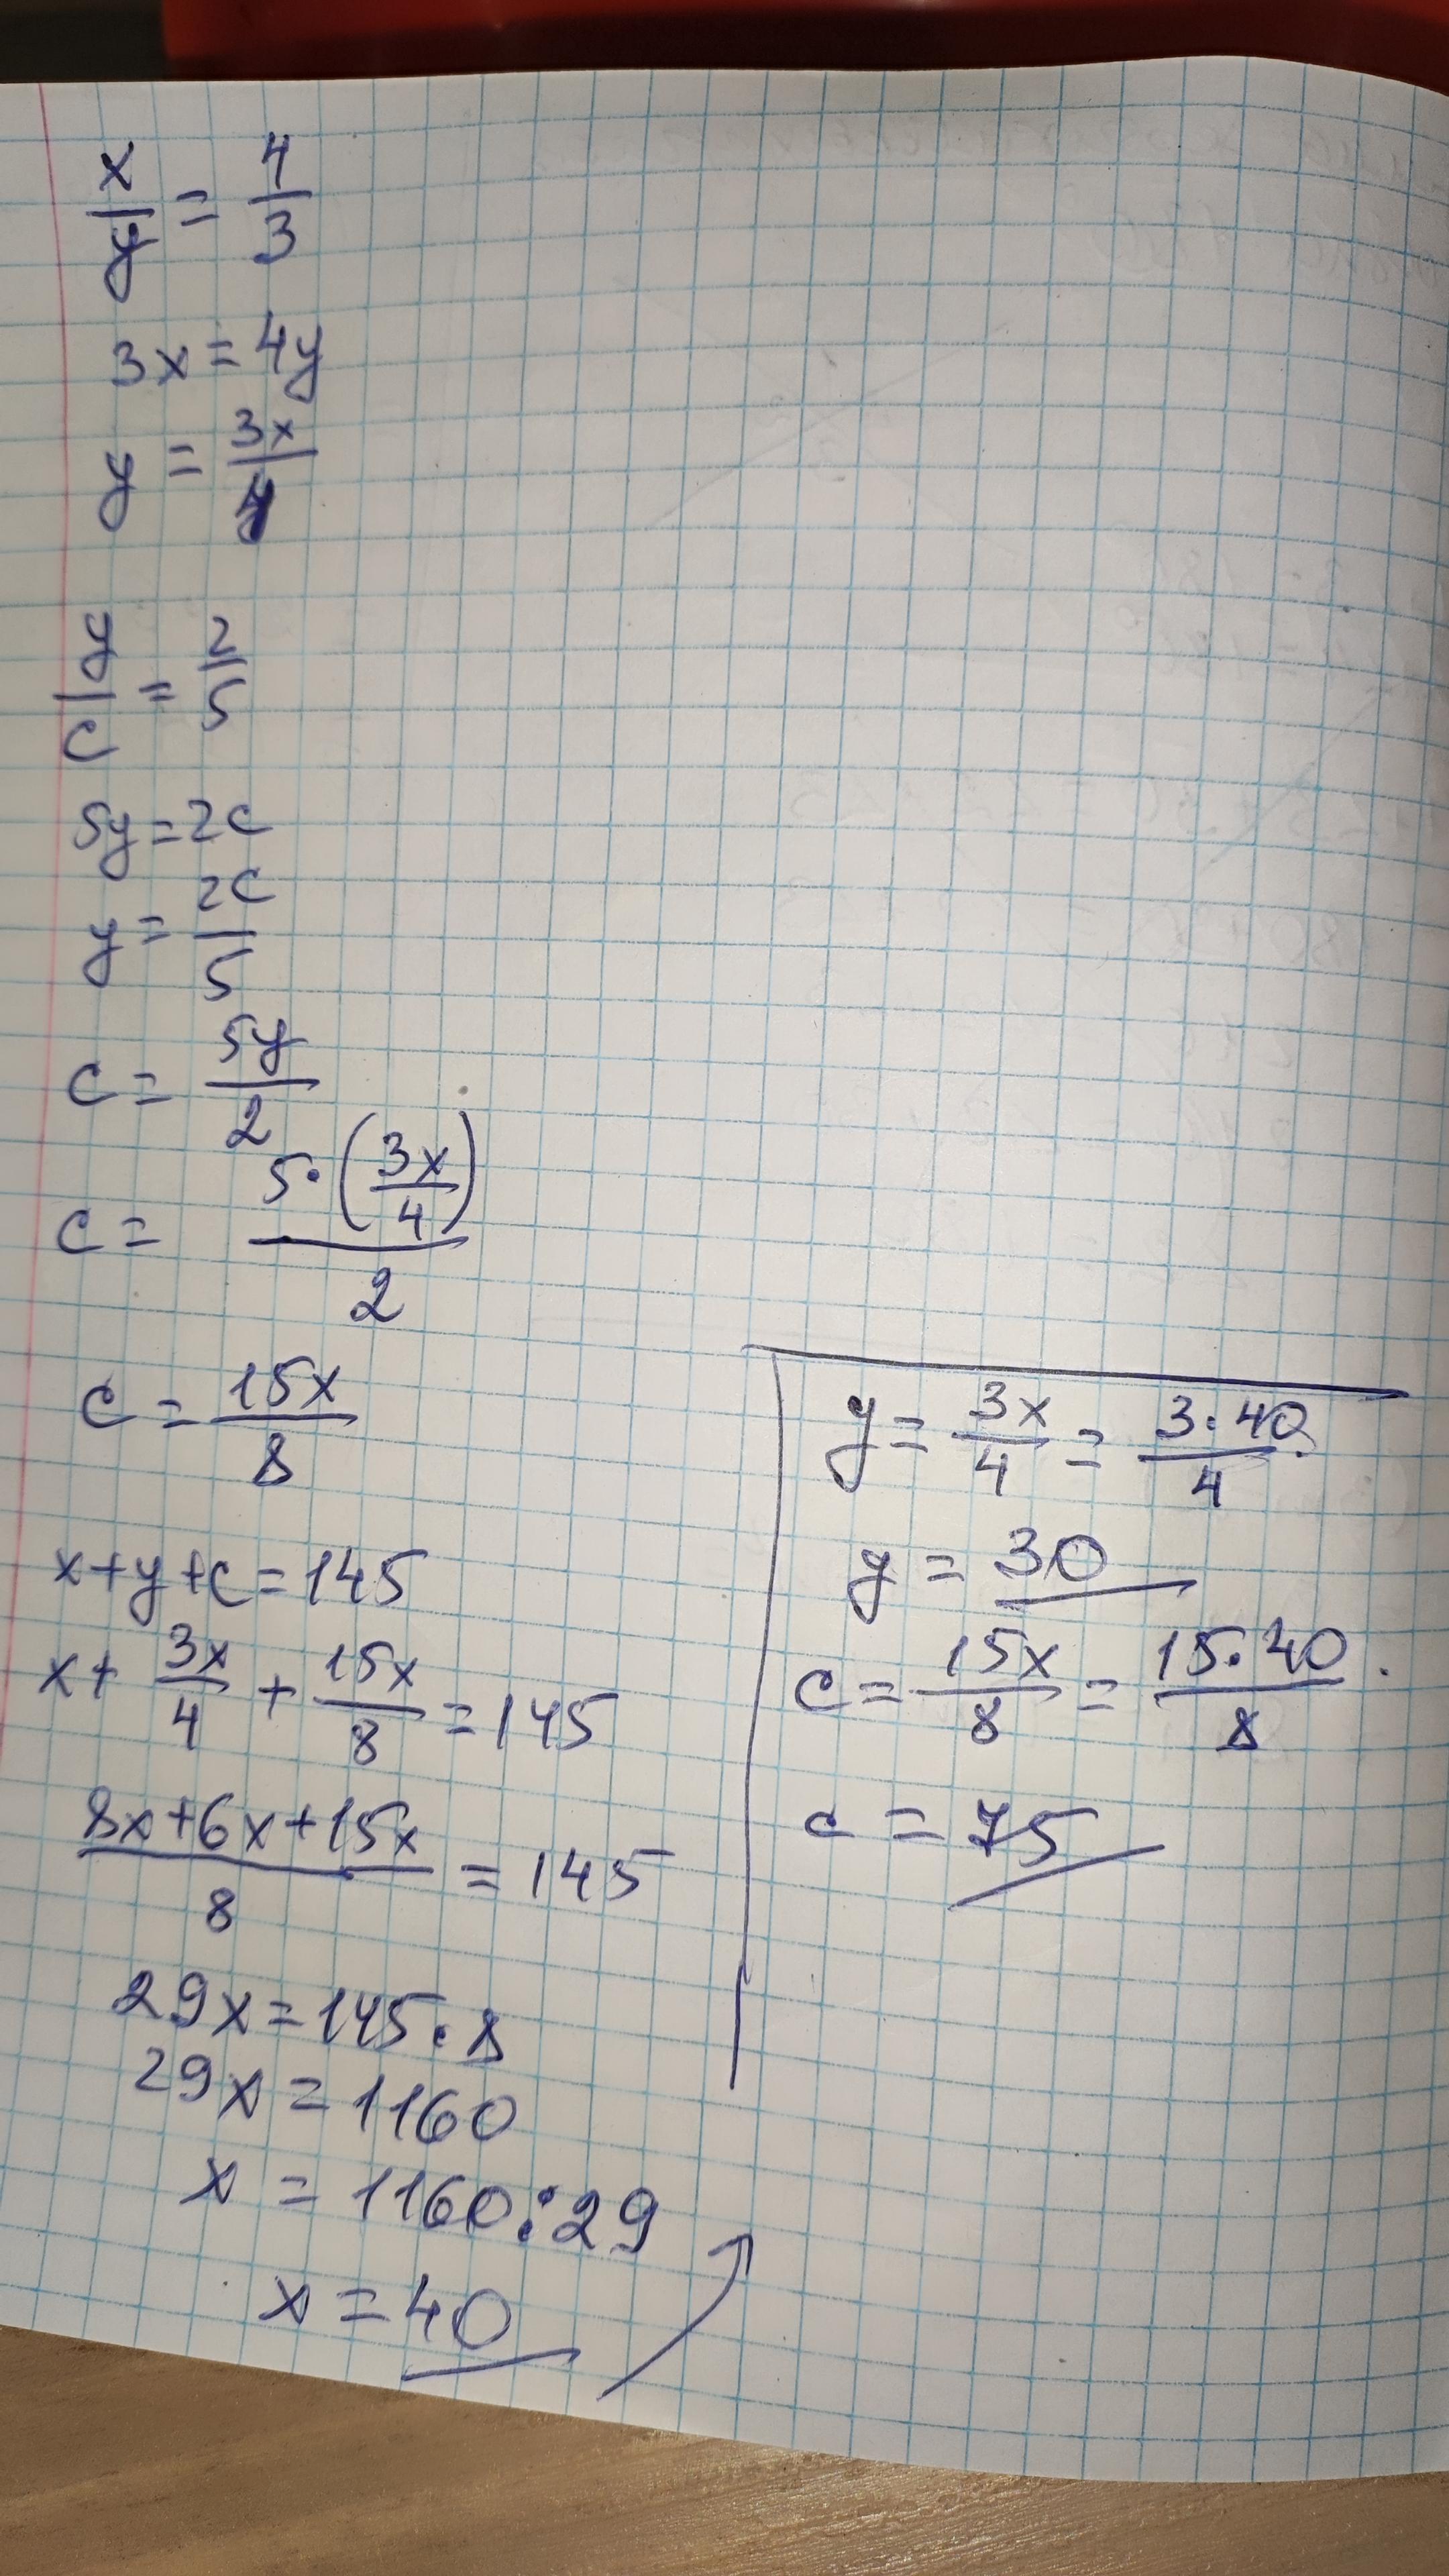 x/y = 4/3
3x = 4y
y = 3x/4
y/c = 2/5
5y = 2c
y = 2c/5
c = 5y/2
c = 5·(3x/4)/2
c = 15x/8
x+y+c = 145
x + 3x/4 + 15x/8 = 145
(8x+6x+15x)/8 = 145
29x = 145·8
29x = 1160
x = 1160:29
x = 40
y = 3x/4 = 3·40/4
y = 30
c = 15x/8 = 15·40/8
c = 75